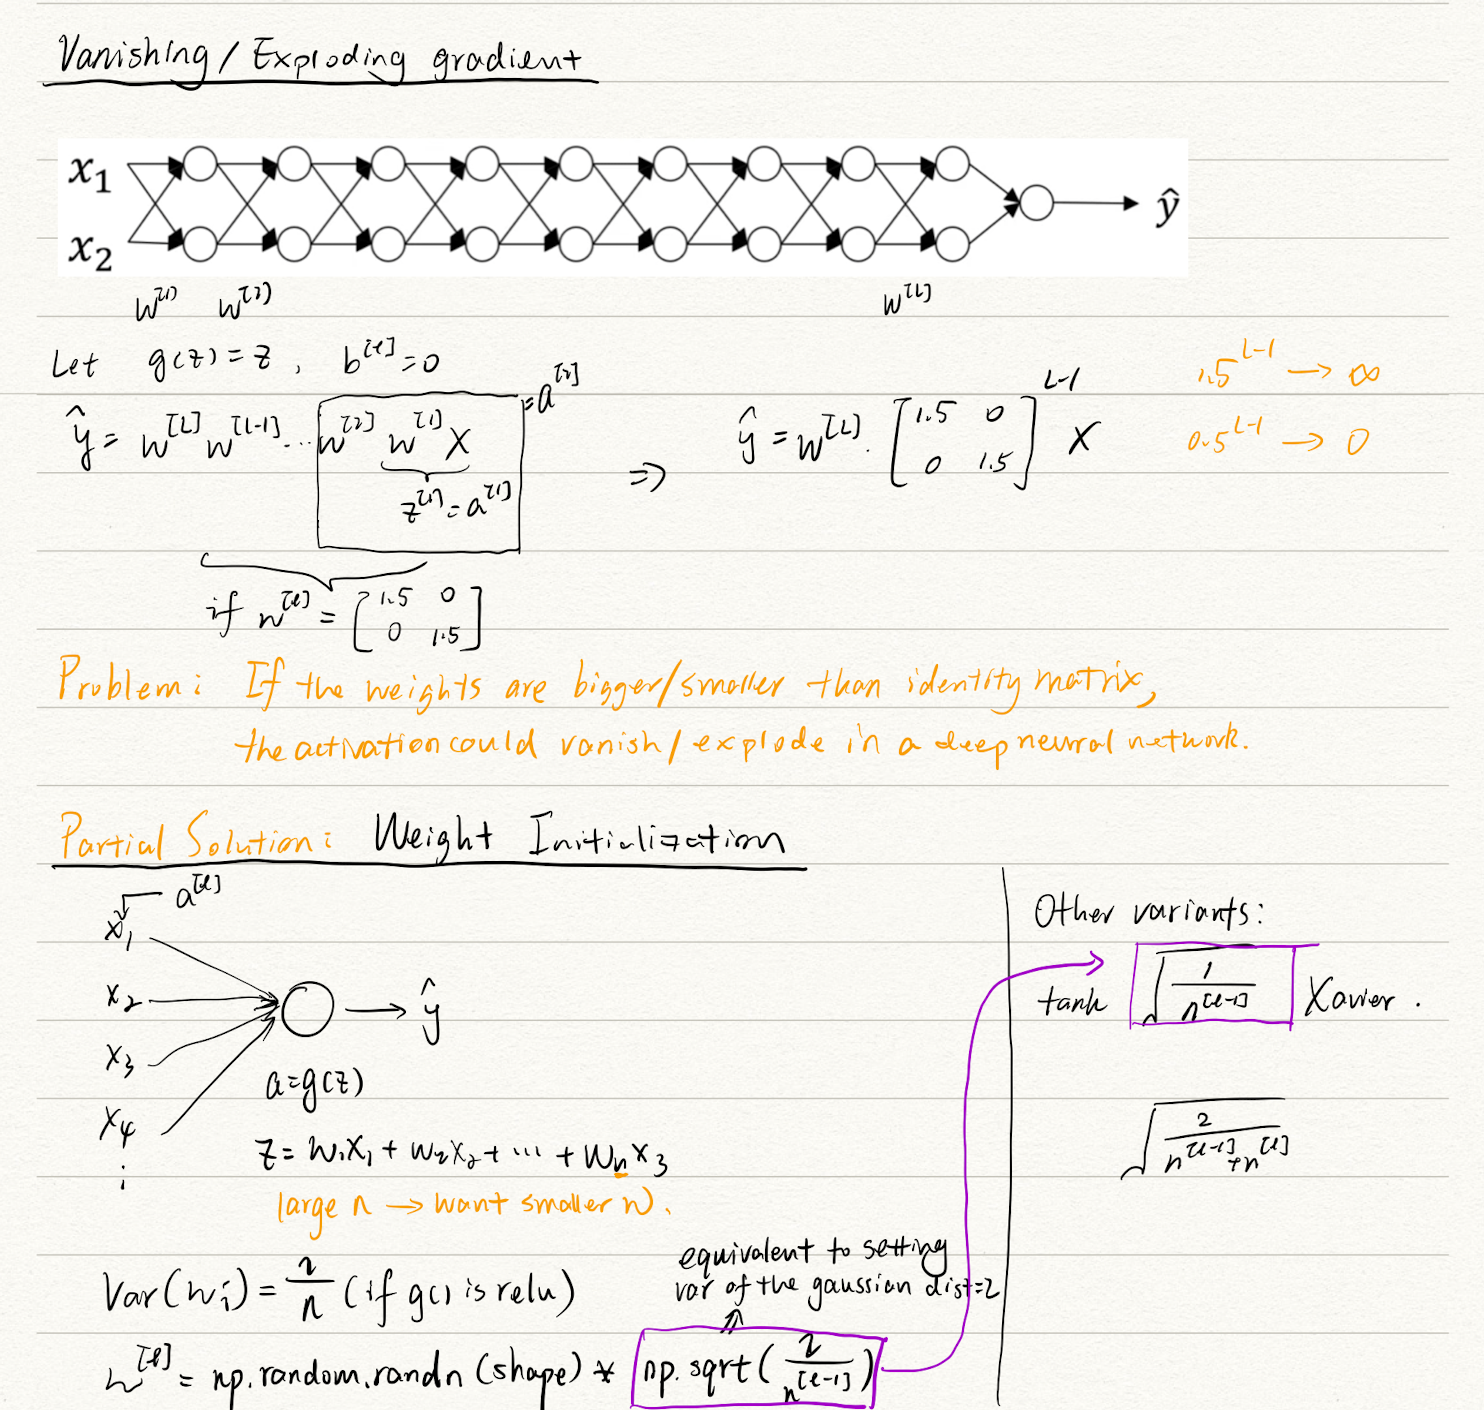 Vanishing / Exploding gradient
x₁
x₂
ŷ
W^[1] W^[2] W^[L]
Let g(z) = z , b^[l] = 0
ŷ = W^[L] W^[L-1] ... W^[2] W^[1] X = a^[2]
z^[1] = a^[1]
⇒ ŷ = W^[L] . [1.5 0
0 1.5]^L-1 X
1.5^L-1 → ∞
0.5^L-1 → 0
if W^[l] = [1.5 0
0 1.5]
Problem: If the weights are bigger/smaller than identity matrix,
the activation could vanish / explode in a deep neural network.
Partial Solution: Weight Initialization
a^[l]
x₁
x₂
x₃
x₄
⋮
ŷ
a = g(z)
z = w₁x₁ + w₂x₂ + ... + wₙx₃
large n → want smaller w.
Var(wᵢ) = 2/n (if g() is relu)
equivalent to setting
var of the gaussian dist=2
W^[l] = np.random.randn (shape) * np.sqrt( 2/n^[l-1] )
Other variants:
tanh √(1/n^[l-1]) Xavier .
√(2/(n^[l-1] + n^[l]))